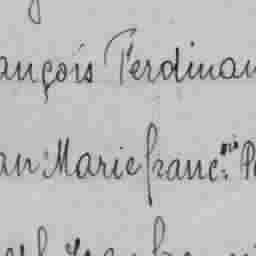 ançois Ferdinan
an Marie franc.ois P